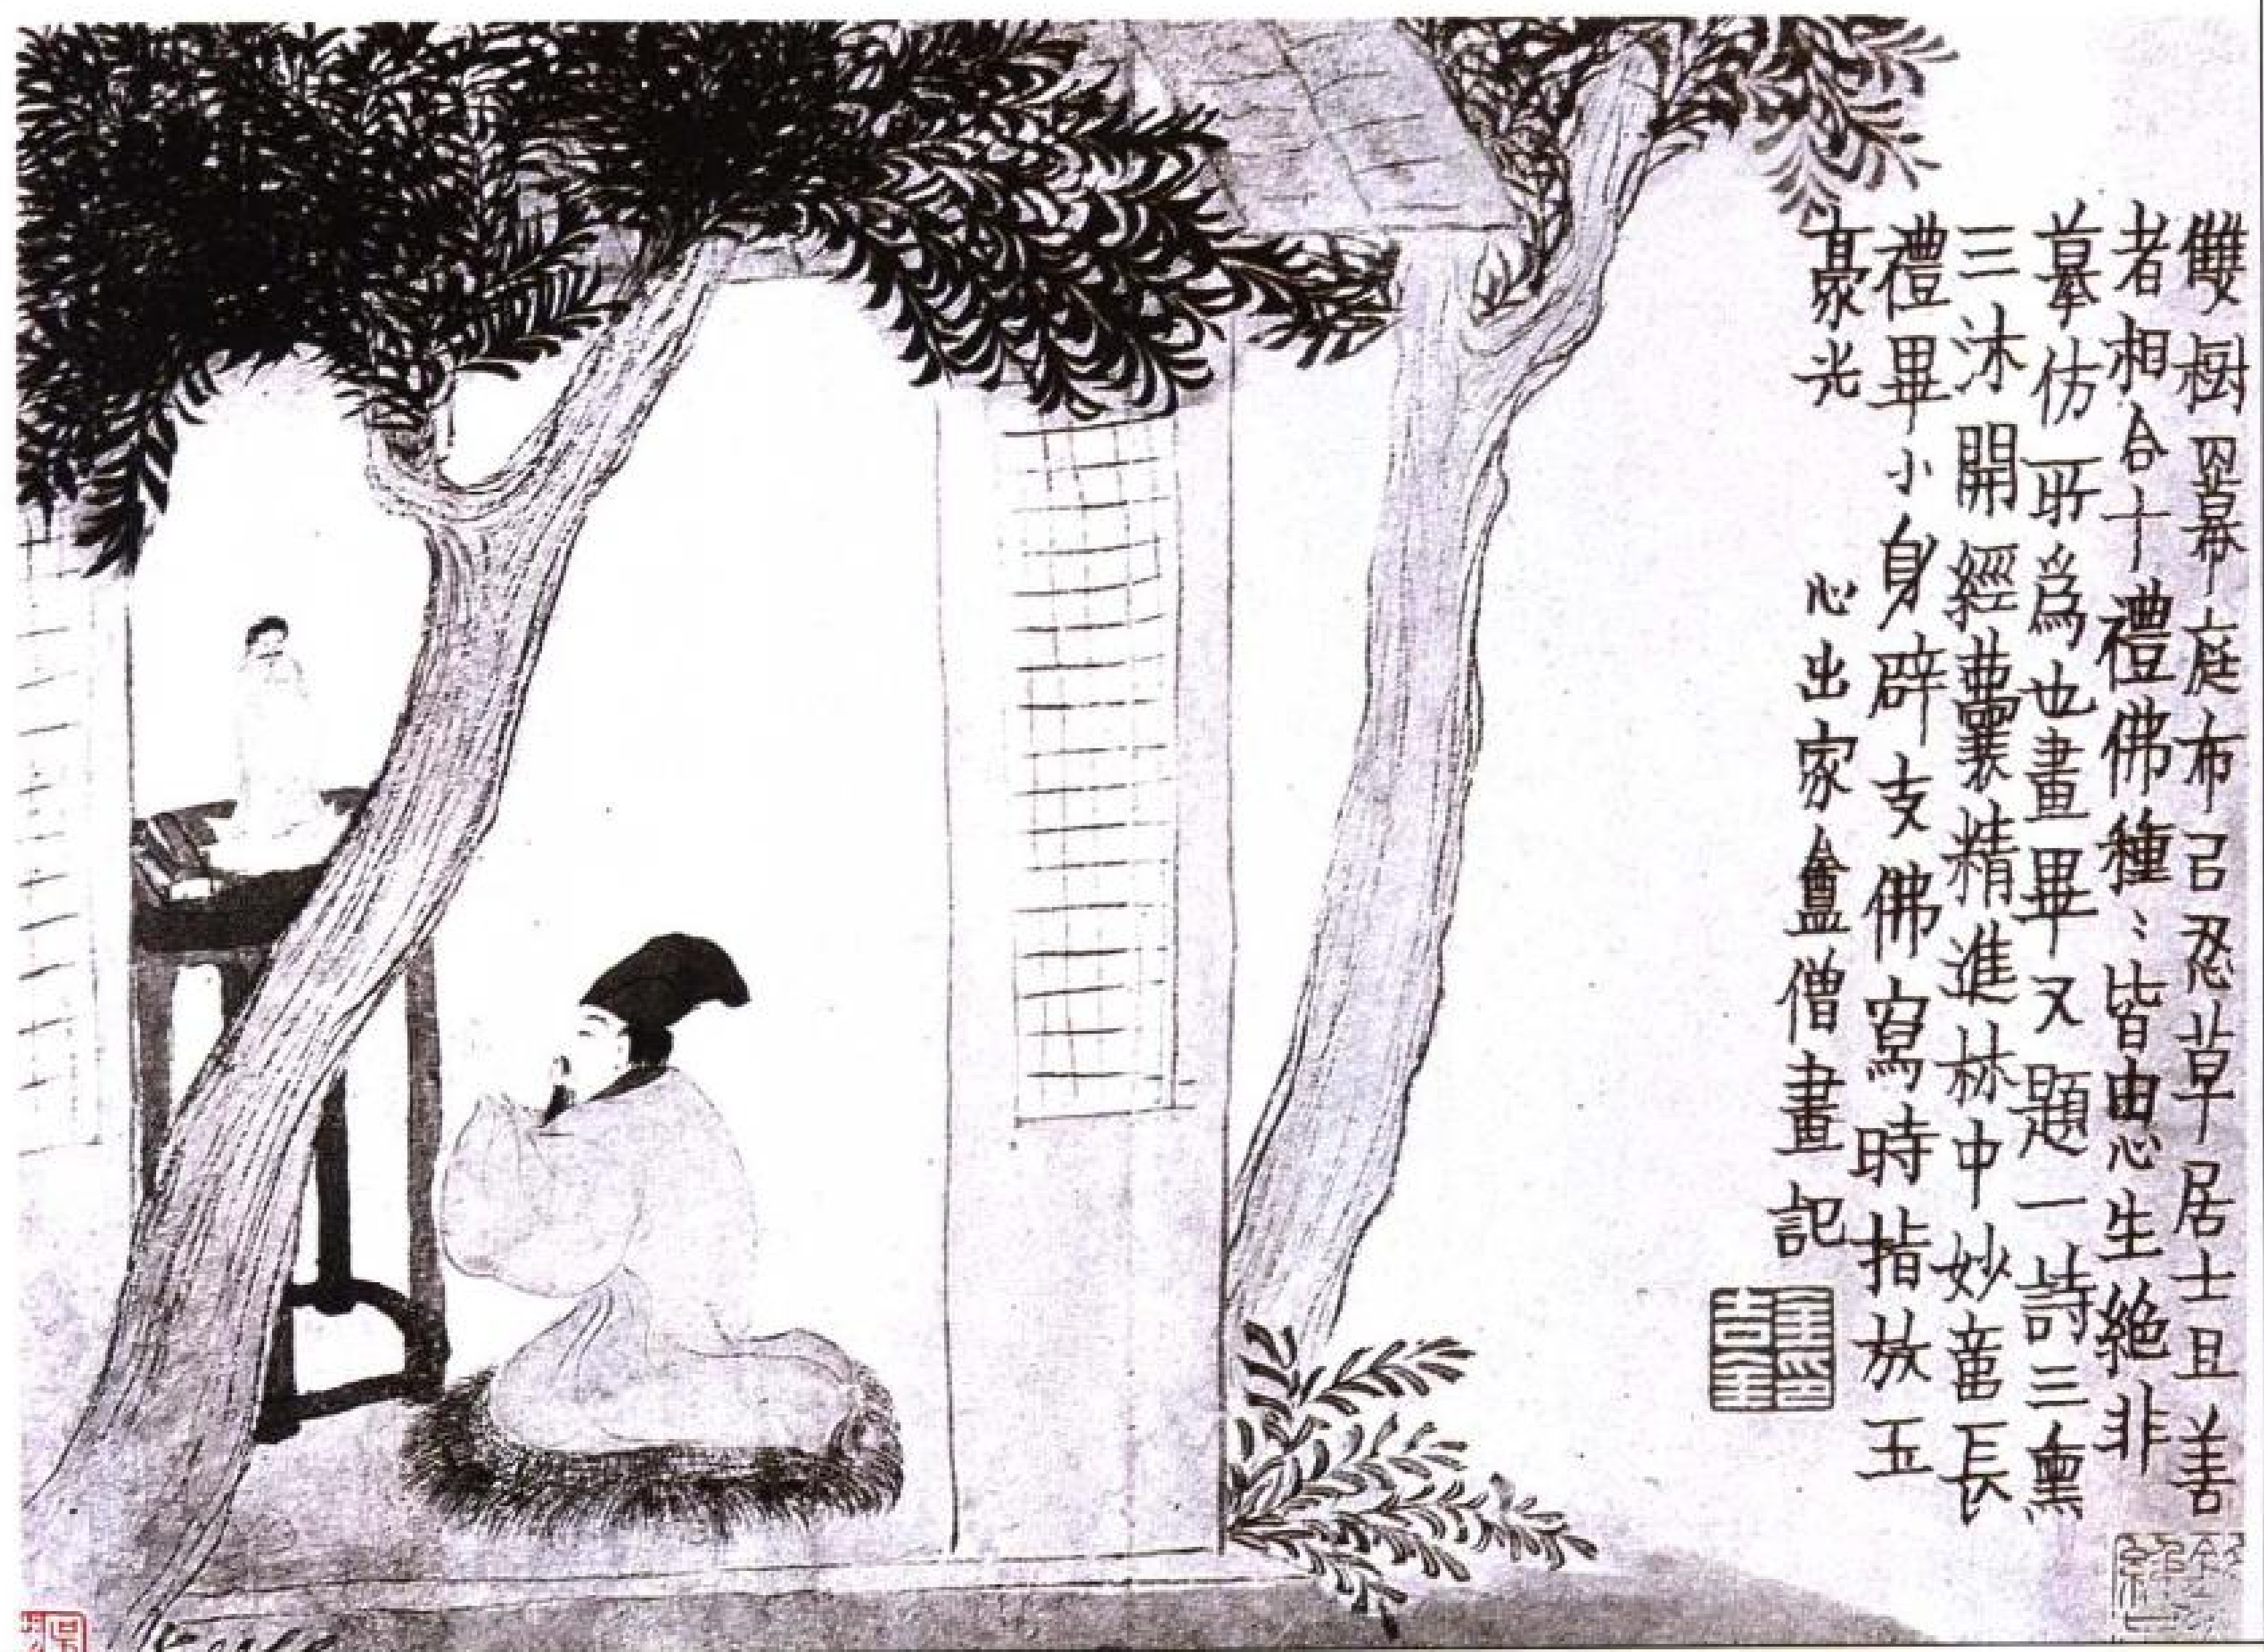 雙樹羃庭布已忍草居士且善
者相合十禮佛種〻皆由心生絶非
摹仿所爲也畫畢又題一詩三熏
三沐開經囊精進林中妙長
禮畢小身辟支佛寫時指放五
豪光 心出家盦僧畫記
金吉金印